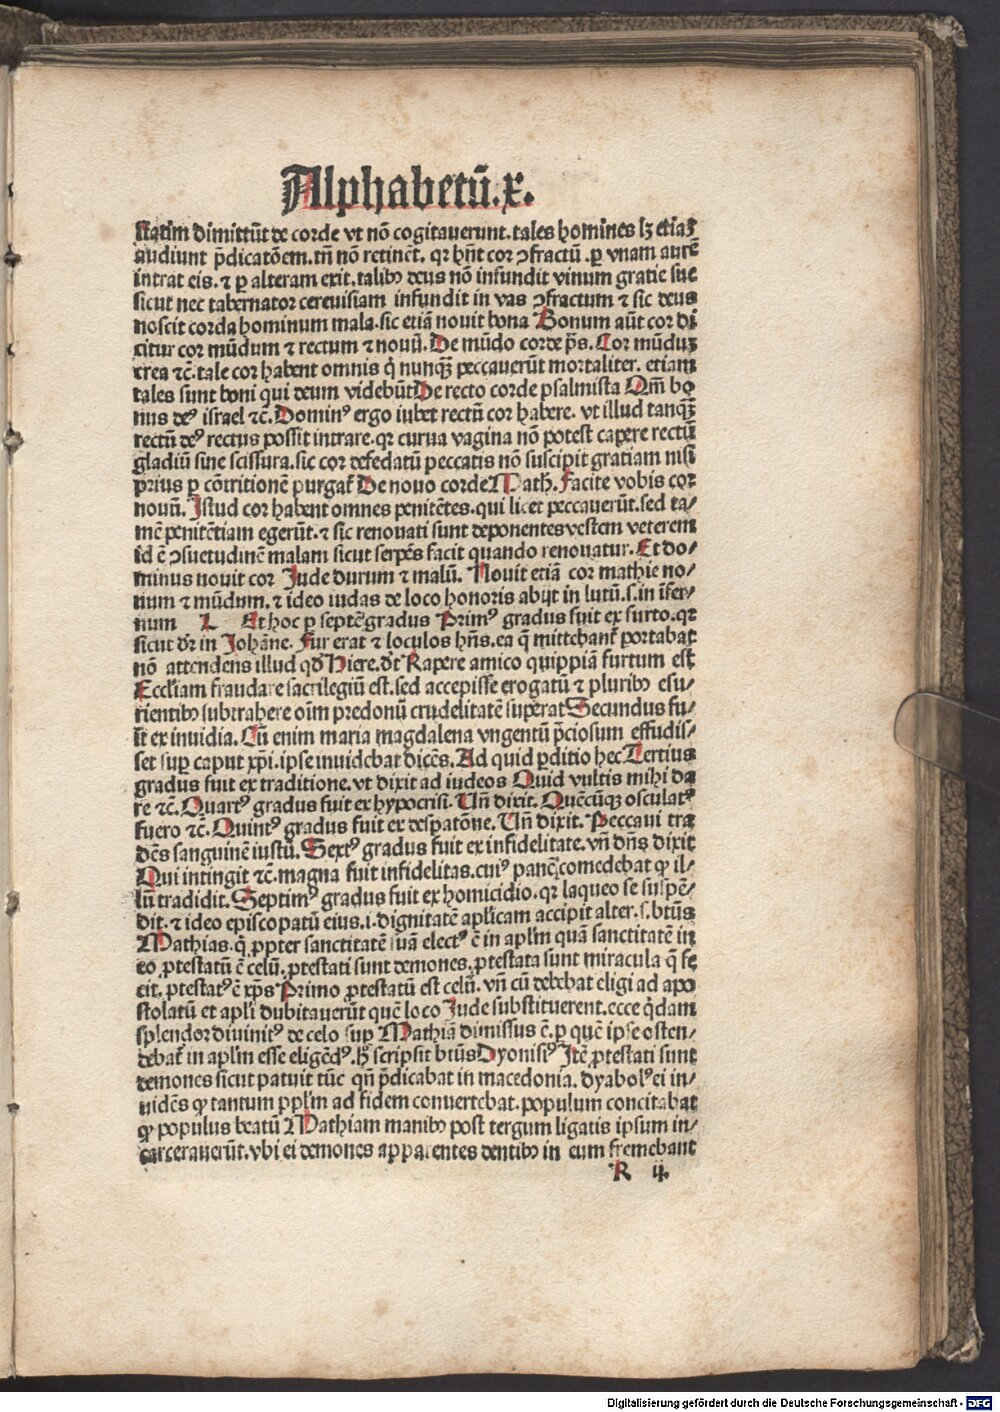 Alphabetū.x.
statim dimittūt de corde vt nō cogitauerunt.tales homines lꝫ etiaꝫ
audiunt p̄dicatōem.tn̄ nō retinēt. qꝛ hn̄t cor ↄfractū .ꝑ vnam aurē
intrat eis. ⁊ ꝑ alteram exit.talibꝰ deus nō infundit vinum gratie sue
sicut nec tabernator cereuisiam infundit in vas ↄfractum ⁊ sic deus
noscit corda hominum mala.sic etiā nouit bona Bonum aūt cor di
citur cor mūdum ⁊ rectum ⁊ nouū. De mūdo corde p̄s. Cor mūduꝫ
crea ⁊c̄.tale cor habent omnis q̇ nunqꝫ̄ peccauerūt mortaliter. etiam
tales sunt boni qui deum videbūt De recto corde psalmista Qm̄ bo
nus deꝰ israel ⁊c̄. Dominꝰ ergo iubet rectū cor habere. vt illud tanqꝫ̄
rectū deꝰ rectus possit intrare.qꝛ curua vagina nō potest capere rectū
gladiū sine scissura.sic cor defedatū peccatis nō suscipit gratiam nisi
prius ꝑ cōtritionē purgat̄ De nouo corde Math. Facite vobis cor
nouū. Istud cor habent omnes penitētes.qui licet peccauerūt.sed ta-
mē penitētiam egerūt.⁊ sic renouati sunt deponentes vestem veterem
id ē ↄsuetudinē malam sicut serpēs facit quando renouatur. Et do/
minus nouit cor Jude durum ⁊ malū. Nouit etiā cor mathie no/
num ⁊ mūdum.⁊ ideo iudas de loco honoris abijt in lutū.s.in īfer-
num L Et hoc ꝑ septē gradus Primꝰ gradus fuit ex furto.qꝛ
sicut dꝛ in Johāne. Fur erat ⁊ loculos hn̄s.ea q̄ mittebant̄ portabat
nō attendens illud qd̓ Hiere.dt̄ Rapere amico quippiā furtum est
Eccl̓iam fraudare sacrilegiū est.sed accepisse erogatū ⁊ pluribꝰ esu/
rientibꝰ subtrahere oīm predonū crudelitatē superat Secundus fu/
it ex inuidia. Cū enim maria magdalena vngentū p̄ciosum effudis/
set suꝑ caput xp̄i.ipse inuidebat dicēs. Ad quid ꝑditio hec Tertius
gradus fuit ex traditione.vt dixit ad iudeos Quid vultis mihi da
re ⁊c̄. Quartꝰ gradus fuit ex hypocrisi. Vn̄ dixit. Quēcūqꝫ osculatꝰ
fuero ⁊c̄. Quintꝰ gradus fuit ex despatōne. Vn̄ dixit. Peccaui tra
dēs sanguinē iustū. Sextꝰ gradus fuit ex infidelitate. vn̄ dn̄s dixit
Qui intingit ⁊c̄.magna fuit infidelitas.cuiꝰ panē comedebat ꝙ il-
lū tradidit. Septimꝰ gradus fuit ex homicidio.qꝛ laqueo se suspē-
dit.⁊ ideo episcopatū eius.i.dignitatē apl̓icam accipit alter.s.btūs
Mathias.q̇ ꝓpter sanctitatē suā electꝰ ē in apl̓m quā sanctitatē in
eo ꝓtestatū ē celū.ꝓtestati sunt demones.ꝓtestata sunt miracula q̄ fe
cit.ꝓtestatꝰ ē xp̄s Primo ꝓtestatū est celū. vn̄ cū debebat eligi ad apo
stolatū et apl̓i dubitauerūt quē loco Jude substituerent.ecce q̇dam
splendor diuinitꝰ de celo suꝑ Mathiā dimissus ē.ꝑ quē ipse osten-
debat̄ in apl̓m esse eligēdꝰ.h̄ scripsit btūs Dyonisiꝰ Itē ꝓtestati sunt
demones sicut patuit tūc qn̄ p̄dicabat in macedonia.dyabolꝰ ei in/
uidēs ꝙ tantum ppl̓m ad fidem conuertebat.populum concitabat
ꝙ populus beatū Mathiam manibꝰ post tergum ligatis ipsum in/
carcerauerūt.vbi ei demones apparentes dentibꝰ in eum fremebant
R ij.
Digitalisierung gefördert durch die Deutsche Forschungsgemeinschaft - DFG